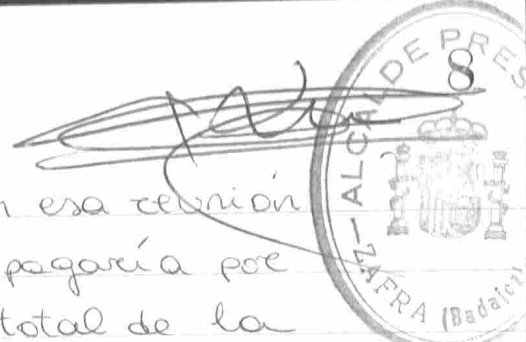 8
ALCALDE PRES
ZAFRA (Badajoz)
n esa reunión
pagaría por
total de la